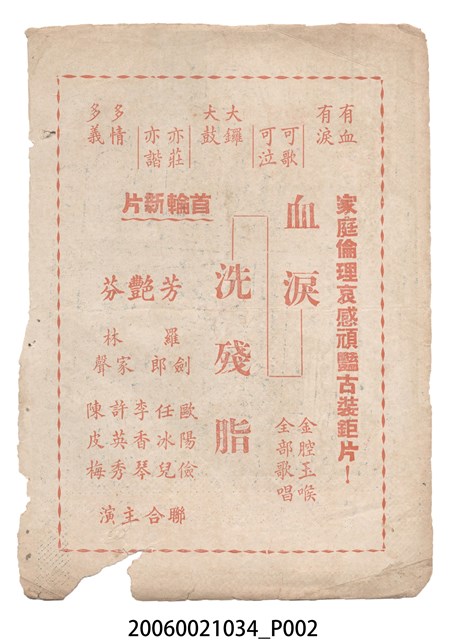 家庭倫理哀感頑豔古裝鉅片！
有血
有淚
可歌
可泣
大鑼
大鼓
亦莊
亦諧
多情
多義
血淚
洗殘脂
金腔玉喉
全部歌唱
首輪新片
芳艷芬
羅劍郎
林家聲
歐陽儉
任冰兒
李香琴
許英秀
陳皮梅
聯合主演
20060021034_P002